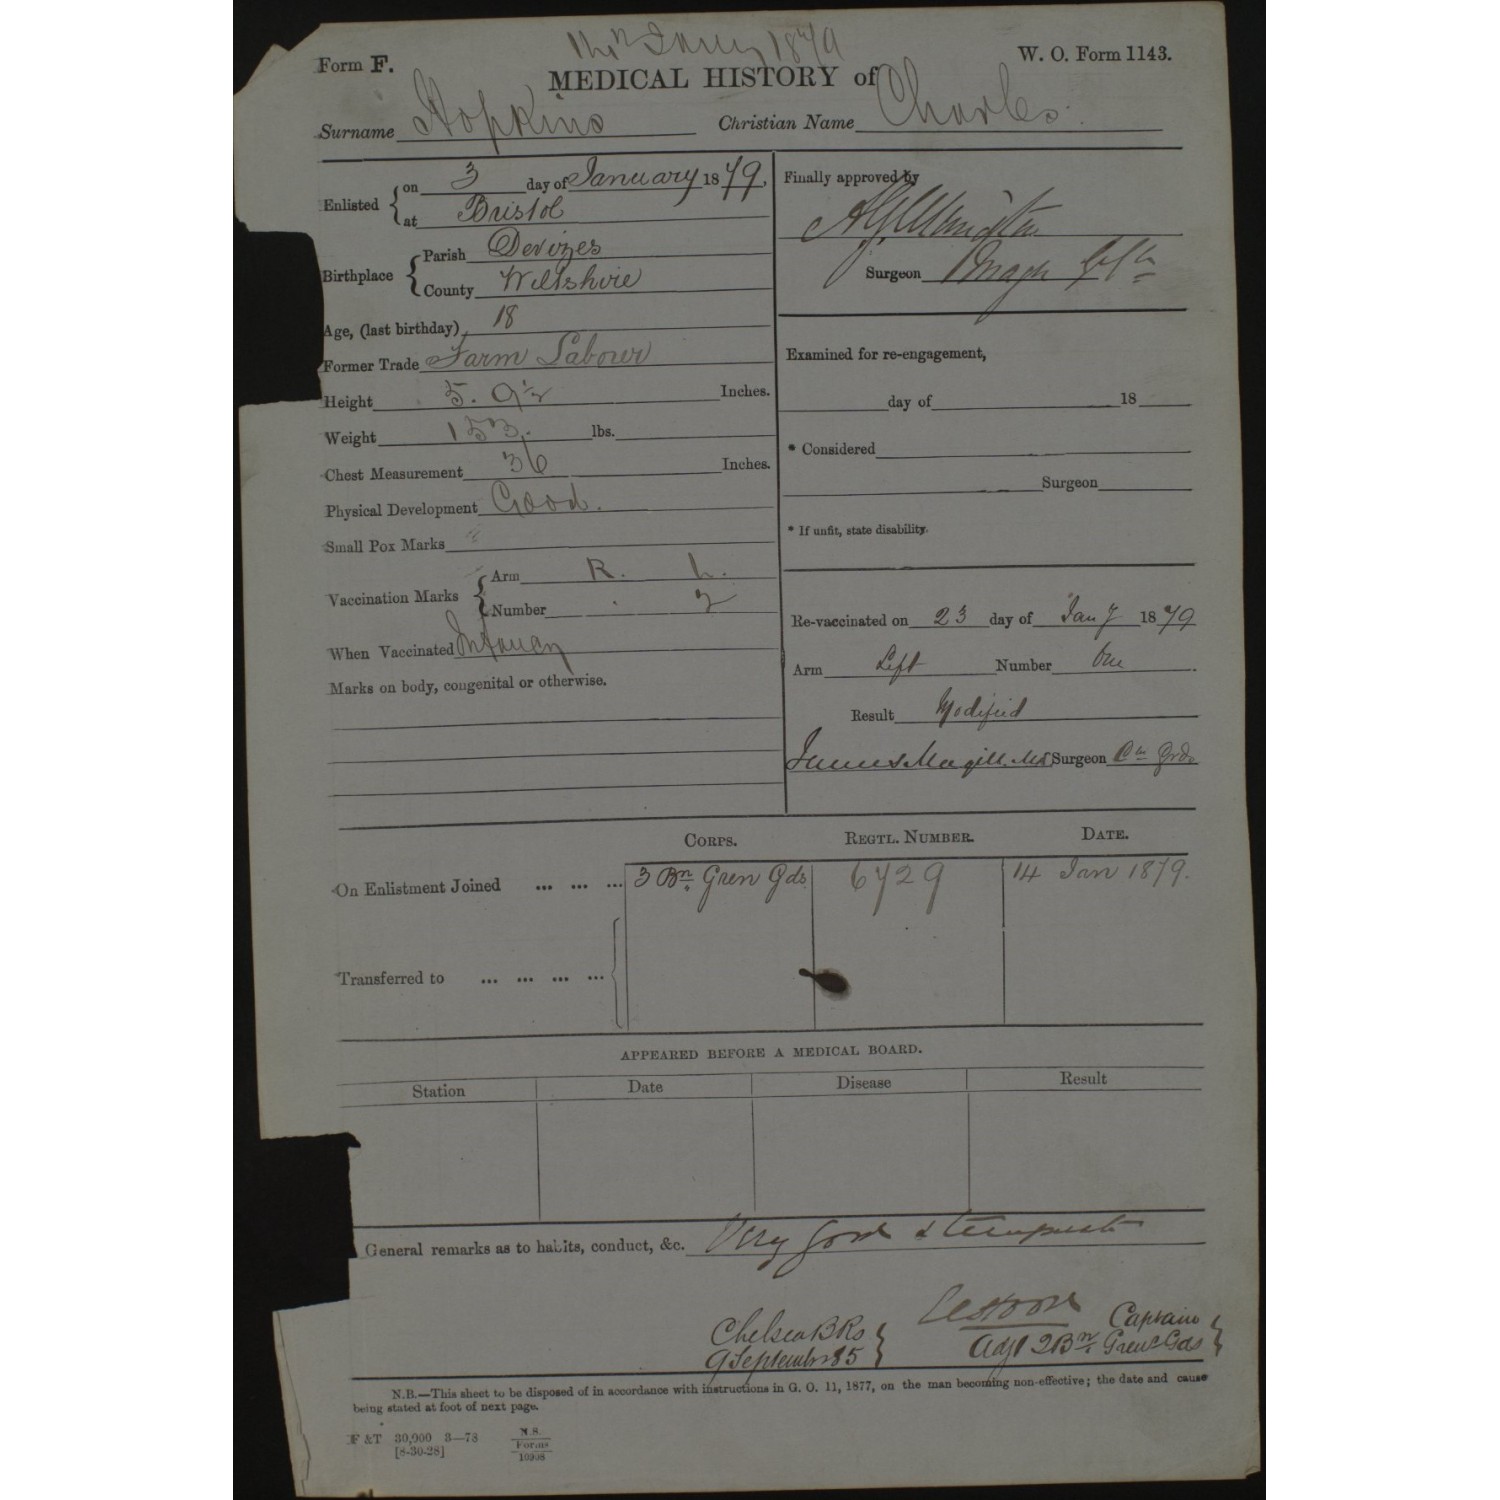 Jany 1879
Form F.
W. O. Form 1143.
MEDICAL HISTORY of
Surname Hopkins Christian Name Charles.
Enlisted { on 3 day of January 1879,
at Bristol
Birthplace { Parish Devizes
County Wiltshire
Age, (last birthday) 18
Former Trade Farm Labourer
Height 5. 9½ Inches.
Weight 153. lbs.
Chest Measurement 36 Inches.
Physical Development Good.
Small Pox Marks
Vaccination Marks { Arm R. L.
Number 2
When Vaccinated Infancy
Marks on body, congenital or otherwise.
Finally approved by
Surgeon
Examined for re-engagement,
day of 18
* Considered
Surgeon
* If unfit, state disability.
Re-vaccinated on 23 day of Jany 1879
Arm Left Number One
Result Modified
James Magill. MD Surgeon Cm Grds
CORPS. REGTL. NUMBER. DATE.
On Enlistment Joined ... ... ... 3 Bn. Gren Gds 6729 14 Jan 1879.
Transferred to ... ... ... ...
APPEARED BEFORE A MEDICAL BOARD.
Station Date Disease Result
General remarks as to habits, conduct, &c. Very good & temperate
Chelsea BKs } Captain }
9 September 85 Adjt 2 Bn. Gren Gds
N.B.—This sheet to be disposed of in accordance with instructions in G. O. 11, 1877, on the man becoming non-effective; the date and cause
being stated at foot of next page.
F & T 30,900 3—78
[8-30-28]
N.S.
Forms
10908